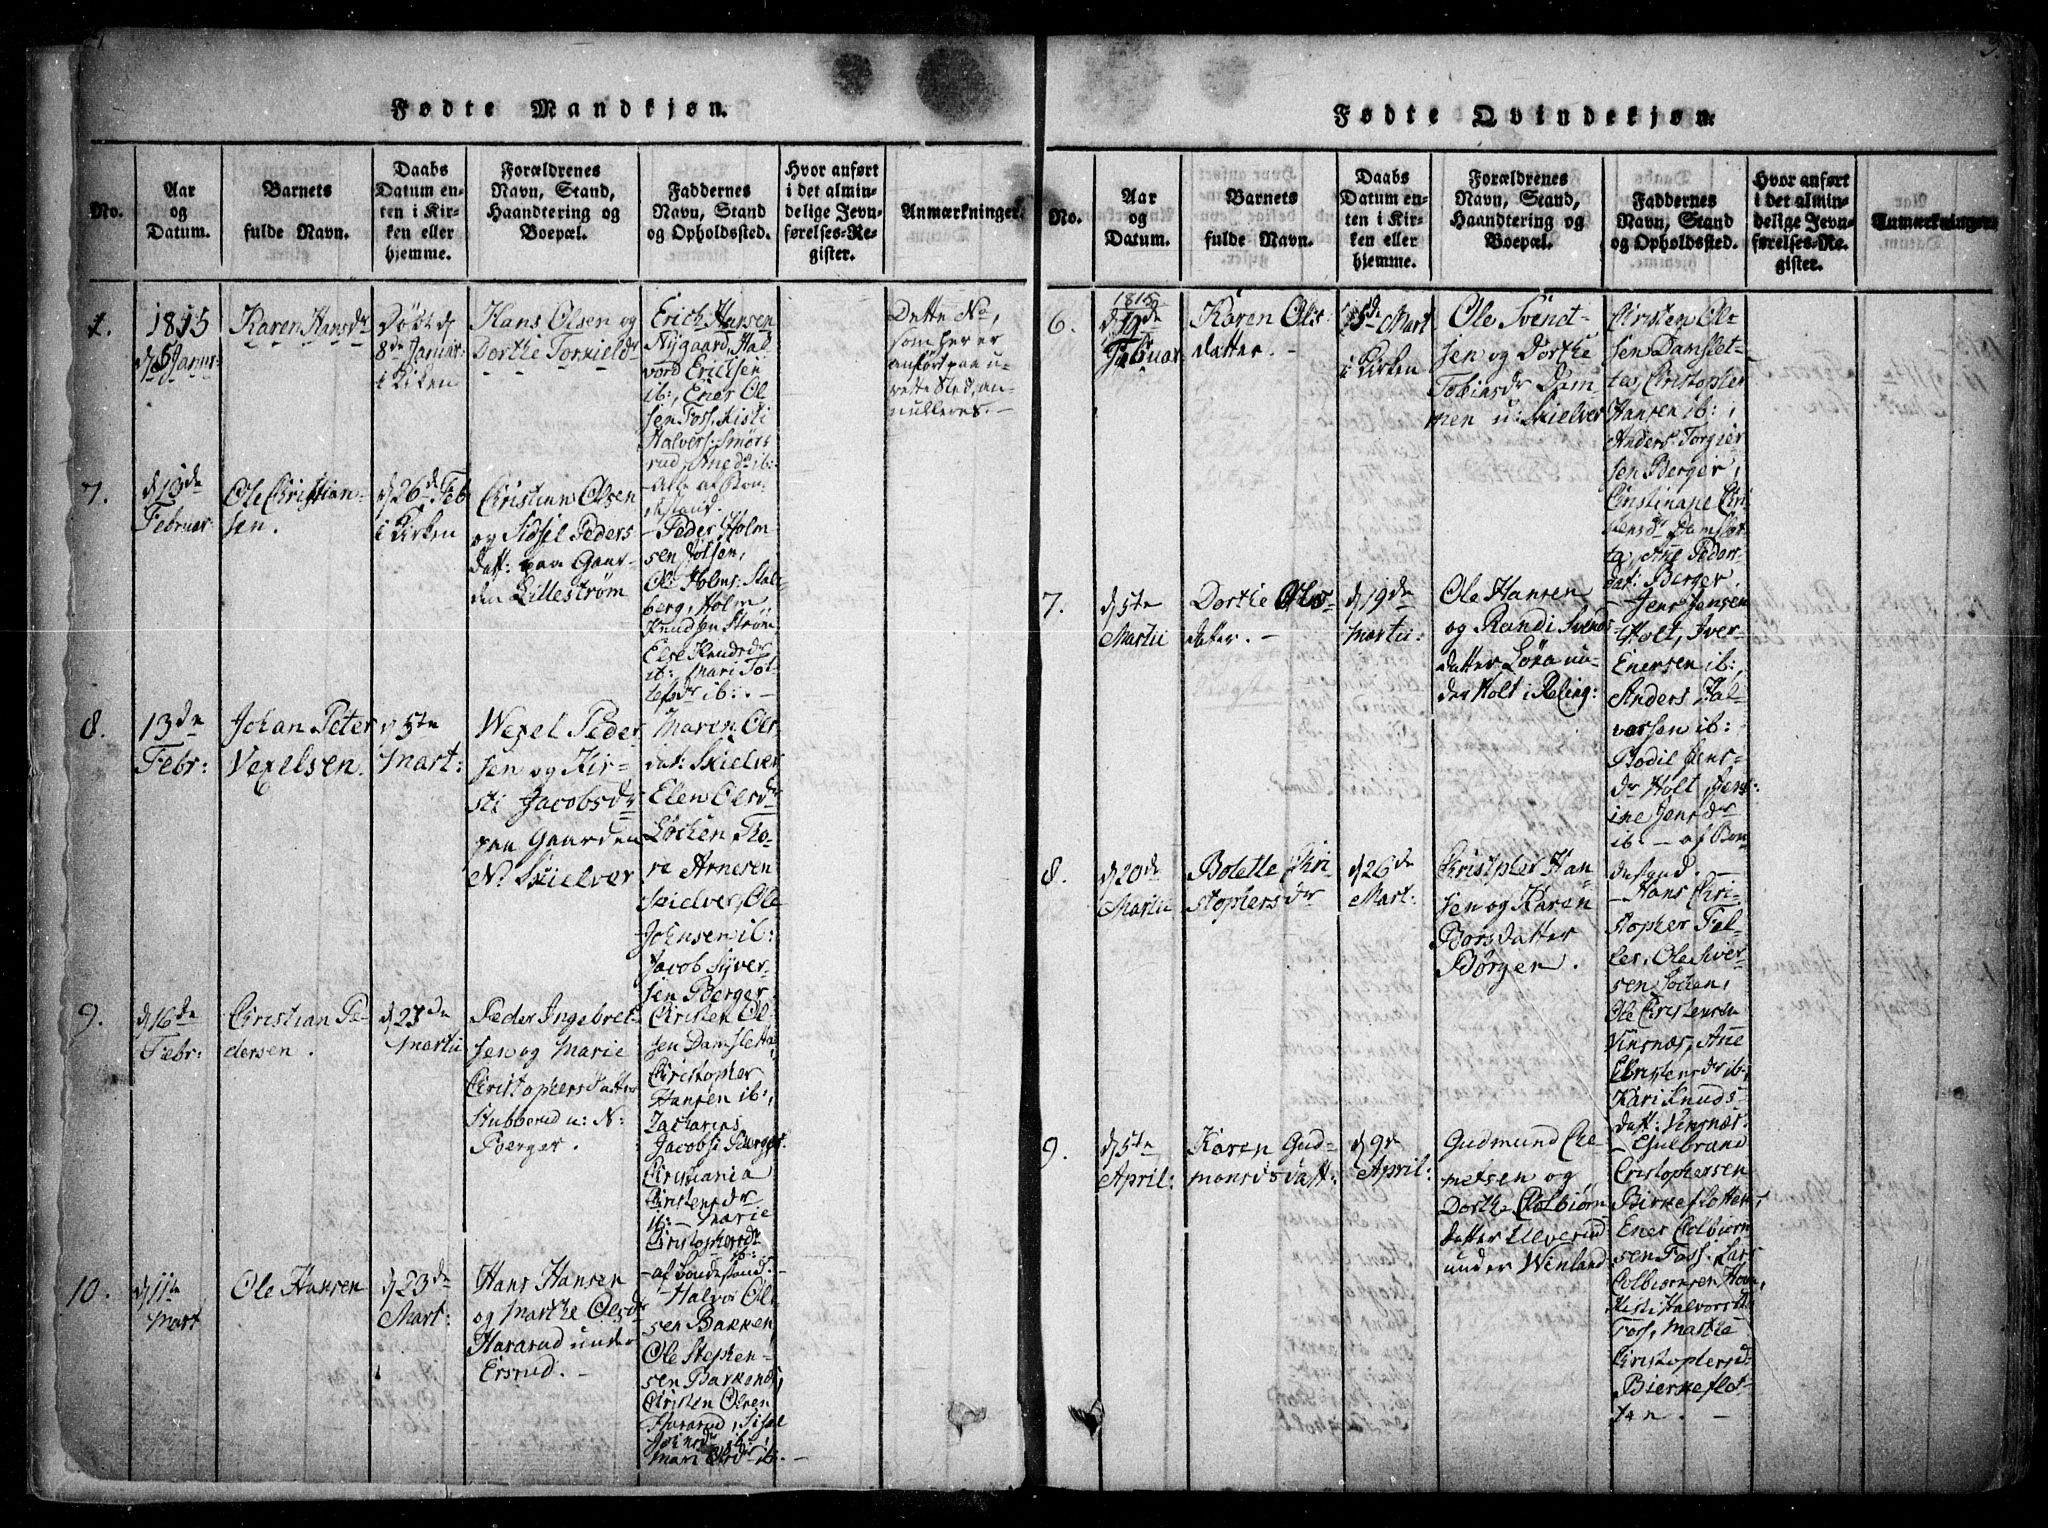 Fødte Mandkjøn.
No.
Aar
og
Datum.
Barnets
fulde Navn.
Daabs
Datum en-
ten i Kir-
ken eller
hjemme.
Forældrenes
Navn, Stand,
Haandtering og
Boepæl.
Faddernes
Navn, Stand
og Opholdssted.
Hvor anført
i det almin-
delige Jevn-
førelses-Re-
gister.
Anmærkninger.
1.
1815
Karen Hansdr
8de Januar
i Kirken
Hans Olsen og
Dorthe Torkieldr
Erich Hansen
Nygaard, Hal
vord Ericksen
ib:, Ener Ol
sen Foss, Kisti
Halvers: Smørs
rud,
Dette No,
som her er
anført paa u-
rette Sted, an-
nulleres. -
7.
d 13de
Februar
Ole Christian-
sen.
d 26de Feb
i Kirken
Christian Olsen
og Sidsel Peders
datt: paa Gaar-
den Lillestrøm
Peder Holm
sen
Ole Holms: Stal-
berg, Holm
Knudsen Strøm
Else Knudsdr
ib:, Mari Tol-
lefsdr ib:. -
8.
13de
Febr:
Johan Peter
Vexelsen.
d 5te
Mart:
Wexel Peder
sen og Kir-
sti Jacobsdr
paa Gaarden
N. Skielver
Maren Ols
dat: Skielver
Elen Olsdr
Løchen, Tho
re Arnesen
Skielver, Ole
Johnsen ib:
Jacob Syver-
sen Berger
9.
d 16de
Febr:
Christian Pe-
dersen.
d 23de
Martii
Peder Ingebret-
sen og Marie
Christophersdatter
Stubberud u: N:
Berger.
Christen Ol-
sen Damsletta,
Christopher
Hansen ib:,
Zacharias
Jacobs: Berger
Christiania
Christensdr
ib: - Marie
Christophersdr
ib:
af Bondestand.
10.
d 11te
Mart
Ole Hansen
d 23de
Mart:
Hans Hansen
og Marthe Olsdr
Hararud under
Ersrud. -
Halvor Ol-
sen Bakken,
Ole Stephen-
sen Bakken,
Christen Olsen
Hararud, Sisel
Johnsdr ib:,
Mari Olsdr ib:. -
Fødte Qvindekjøn.
No.
Aar
og
Datum.
Barnets
fulde Navn.
Daabs
Datum en-
ten i Kir-
ken eller
hjemme.
Forældrenes
Navn, Stand,
Haandtering og
Boepæl.
Faddernes
Navn, Stand
og Opholdssted.
Hvor anført
i det almin-
delige Jevn-
førelses-Re-
gister.
Anmærkninger.
6.
1815
d 19de
Februar
Karen Ols-
datter. -
5de Mart
i Kirken
Ole Svend-
sen og Dorthe
Tobiasdr Dam-
men u: Skielver
Christen Ol-
sen Damslet-
ta, Christopher
Hansen ib:,
Anders Torgier
sen Berger,
Christiane Chri
stensdr Damslet
ta, Ane Peders
dat: Berger
7.
d 5te
Martii
Dorthe Ols-
datter. -
d 19de
Martii:
Ole Hansen
og Randi Svends
datter Løxa un-
der Holt i Reling:
Jens Jensen
Holt, Iver
Enersen ib:,
Anders Hal
vorsen ib:
Bodil Jens-
dr Holt, Jens:
ine Jensdr
ib: - af Bon
destand. -
8.
d 20de
Martii
Bolette Chri
stophersdr
d 26de
Mart:
Christopher Han-
sen og Karen
Borsdatter
Børger.
Hans Chri-
stopher Fel-
ler, Ole Siver
sen
Ole Christensen
Vinsnæs, Ane
Christensdr ib:
Kari Knuds-
datt: Vinsnæs.
9.
d 5te
April:
Karen Gud-
mundsdatt:
d 9de
April:
Gudmund Cle-
metsen og
Dorthe Colbiørns
datter Ulverud
under Winland
Gulbrand
Christophersen
Birkeflotten,
Ener Colbiørn
sen Foss: Lars
Colbiørnsen
Kisti Halvorsd
Foss, Marthe
Christophersd
Bierkeflot-
ten. -